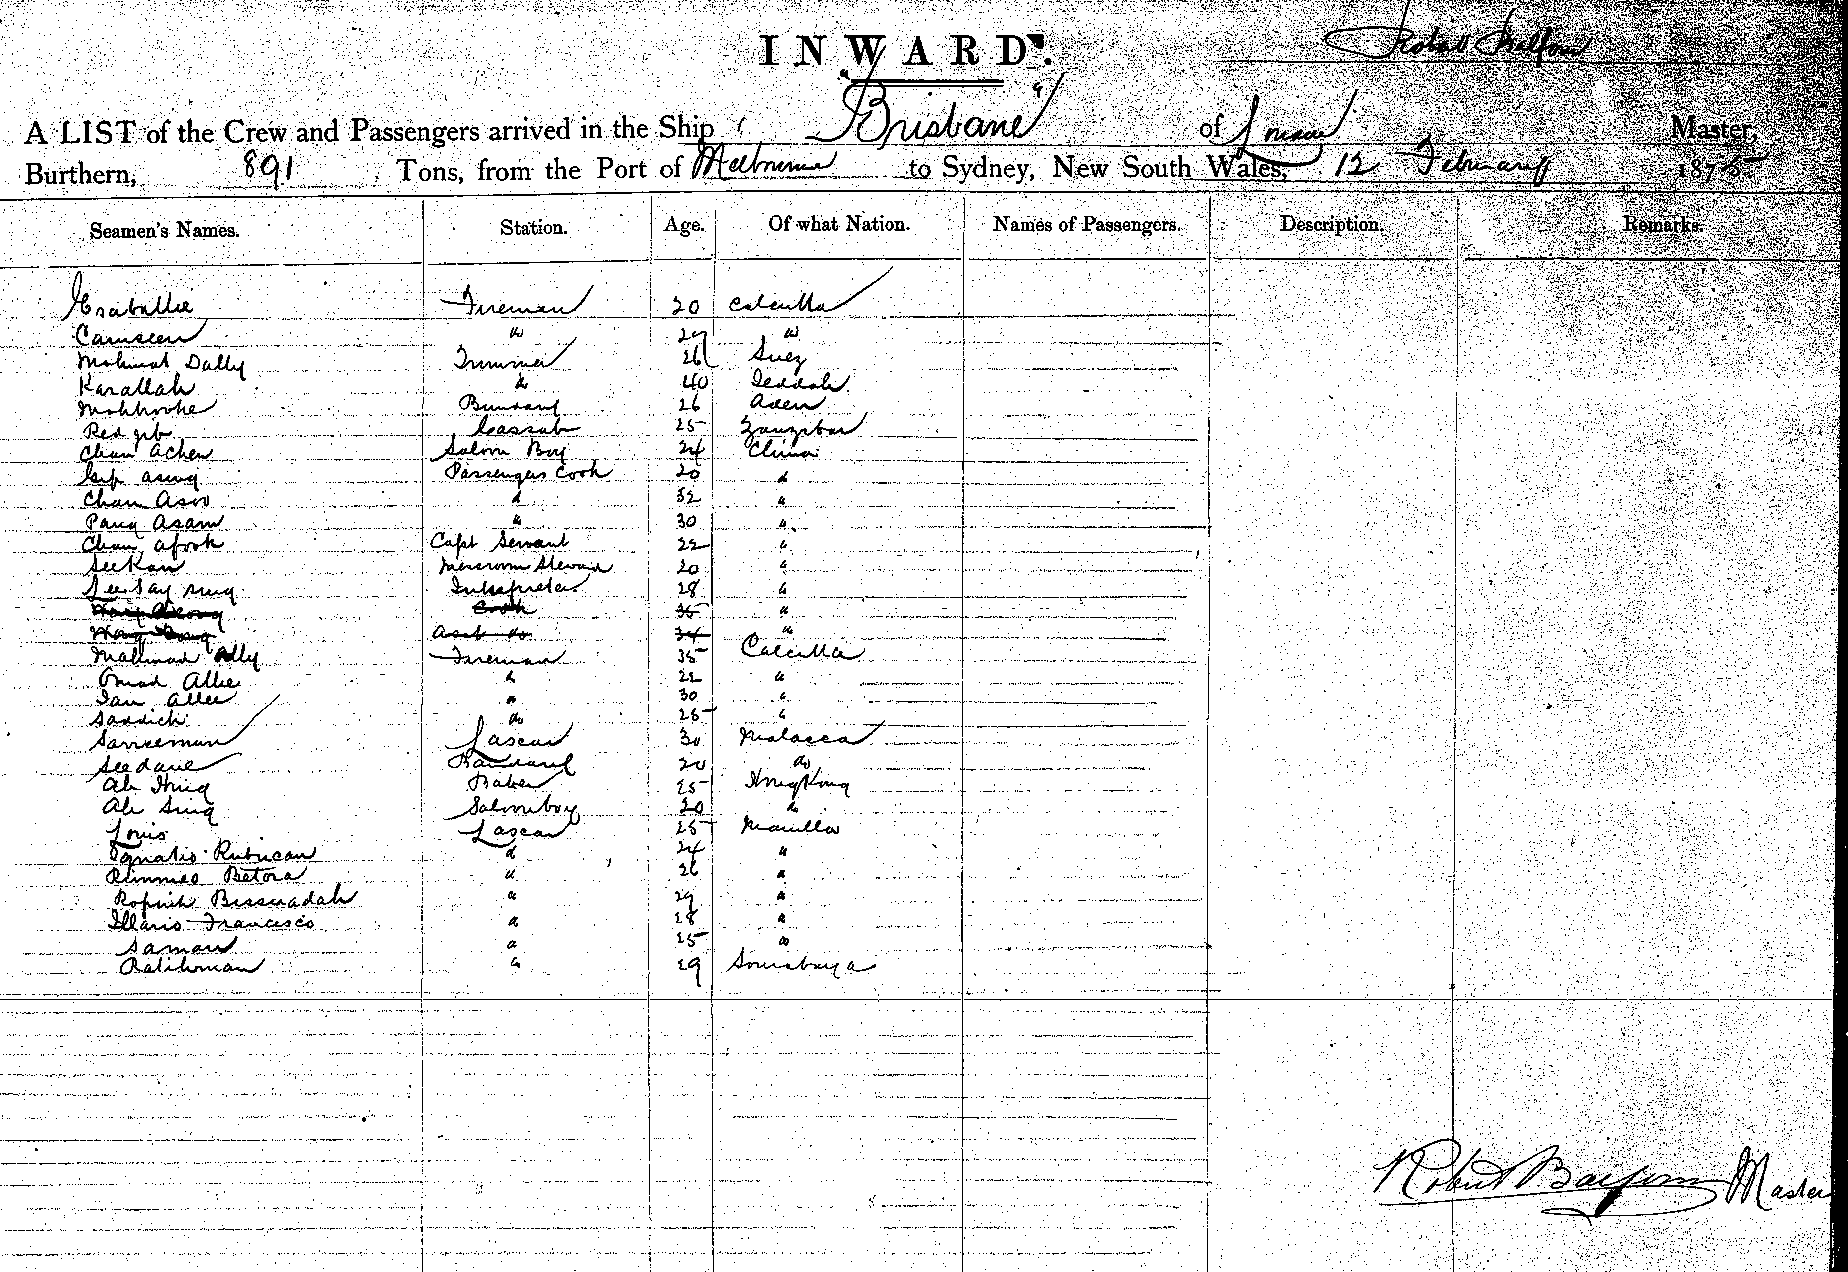 INWARD.
Robert Balfour
A LIST of the Crew and Passengers arrived in the Ship "Brisbane" of London Master,
Burthern, 891 Tons, from the Port of Melbourne to Sydney, New South Wales, 12 February 1875
Seamen's Names. Station. Age. Of what Nation. Names of Passengers. Description. Remarks.
Esaballie Fireman 20 Calcutta
Camseen do 29 do
Mahmat Dally Trimmer 26 Suez
Karallah do 40 Jeddah
Mohhooke 26 Aden
Cassab 25 Zanzibar
Chan Achen Saloon Boy 24 China
Asing Passengers Cook 20 "
Chan Asoo " 32 "
Pang Asam " 30 "
Chan Afook Capt Servant 22 "
See Kan Messroom Steward 20 "
Lee Say Sing Interpreter 28 "
Cook 35 "
Asst do 34 "
Mahmad Ally Fireman 35 Calcutta
Omad Allie " 22 "
Jan Allee " 30 "
Saddick do 25 "
Sarreeman Lascar 30 Malacca
Seedane 20 do
Ah Hing Baker 25 HongKong
Ah Sing Saloon boy 20 do
Louis Lascar 25 Manilla
Ignatio Rubucan " 24 "
Betora " 26 "
Bissuadah " 29 "
Illario Francisco " 28 "
Saman " 25 do
Ratihoman " 29 Sourabaya
Robert Balfour Master